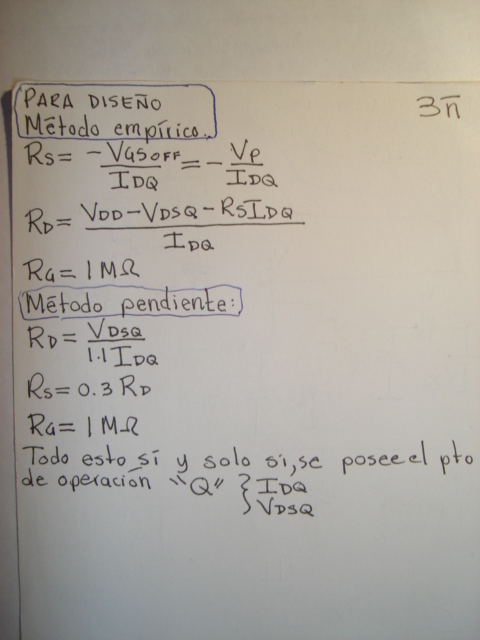 PARA DISEÑO
3n̄
Método empírico:
RS = -VGSOFF/IDQ = - VP/IDQ
RD = VDD - VDSQ - RSIDQ / IDQ
RG = 1 MΩ
Método pendiente:
RD = VDSQ/1.1 IDQ
RS = 0.3 RD
RG = 1 MΩ
Todo esto sí y solo si, se posee el pto
de operación "Q" } IDQ
VDSQ